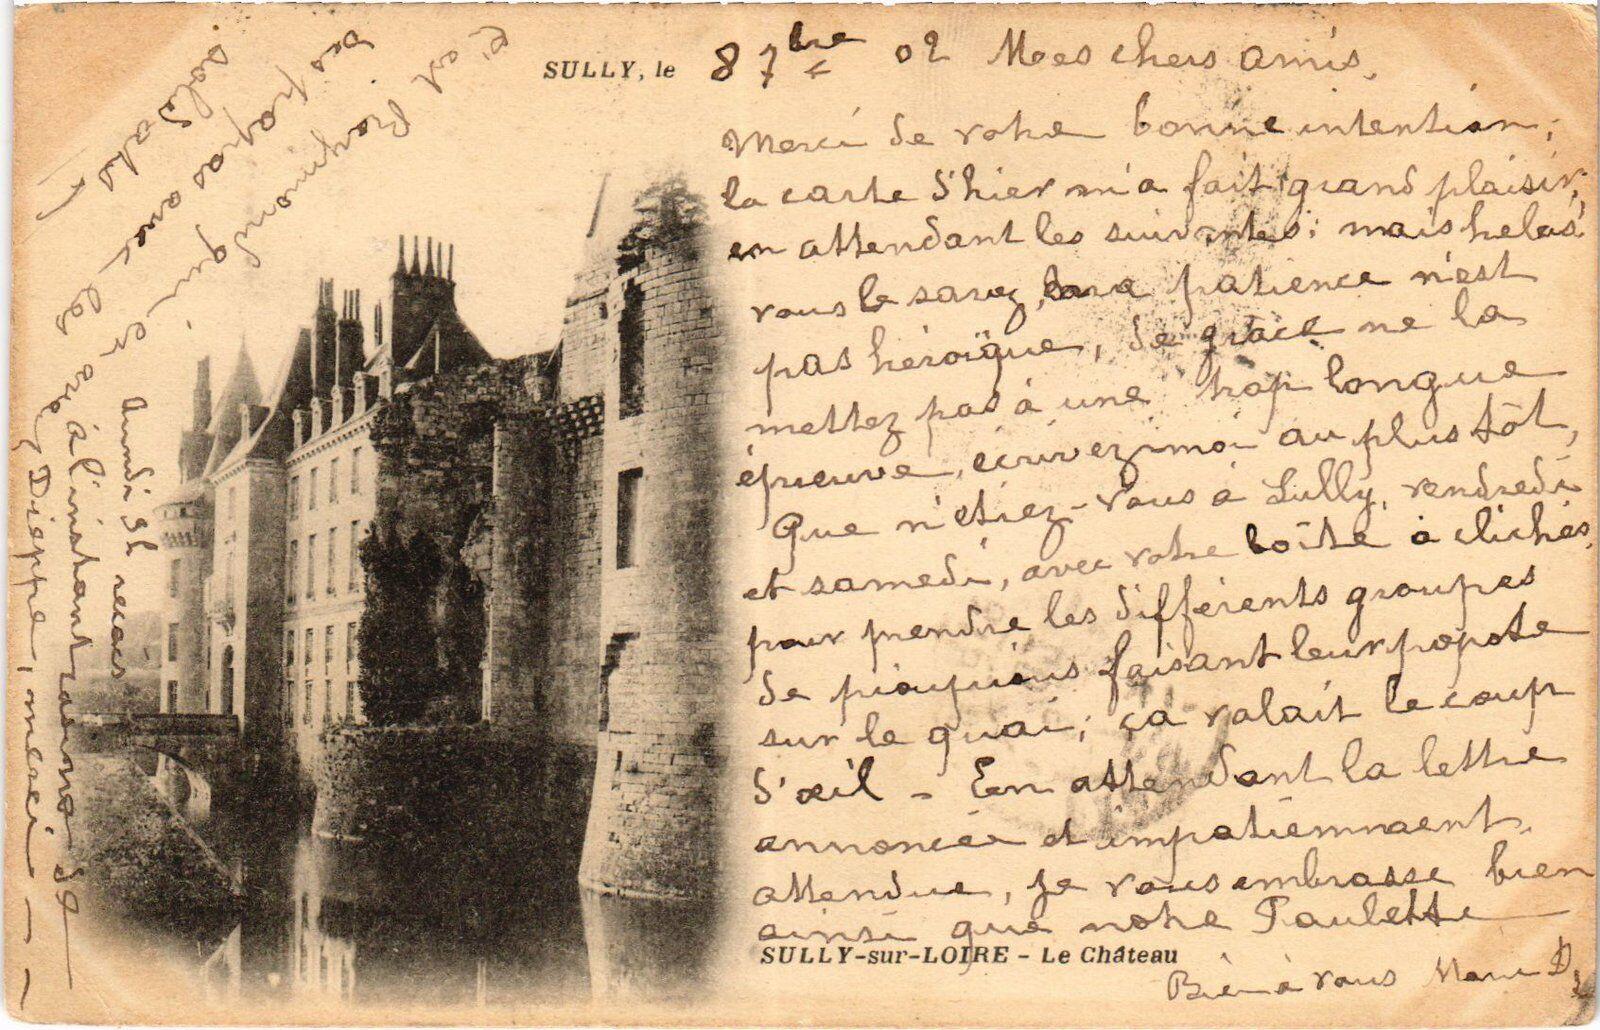 SULLY, le 8 7bre 02 Mes chers amis,
Merci de votre bonne intention,
la carte d'hier m'a fait grand plaisir,
en attendant les suivantes; mais helas!
vous le savez, ma patience n'est
pas héroïque, de grâce ne la
mettez pas à une trop longue
épreuve, écrivez-moi au plus tôt,
Que n'étiez-vous à Sully, vendredi
et samedi, avec votre boîte à clichés,
pour prendre les différents groupes
de pioupious faisant leur popote
sur le quai; ça valait le coup
d'œil - En attendant la lettre
annoncée et impatiemment
attendue, je vous embrasse bien
ainsi que notre Paulette
SULLY-sur-LOIRE - Le Château
Bien à vous Marie D.
c'est Raymond qui
des papas avec les
soldats,
Lundi 9h reçois
à l'instant
Dieppe, merci —